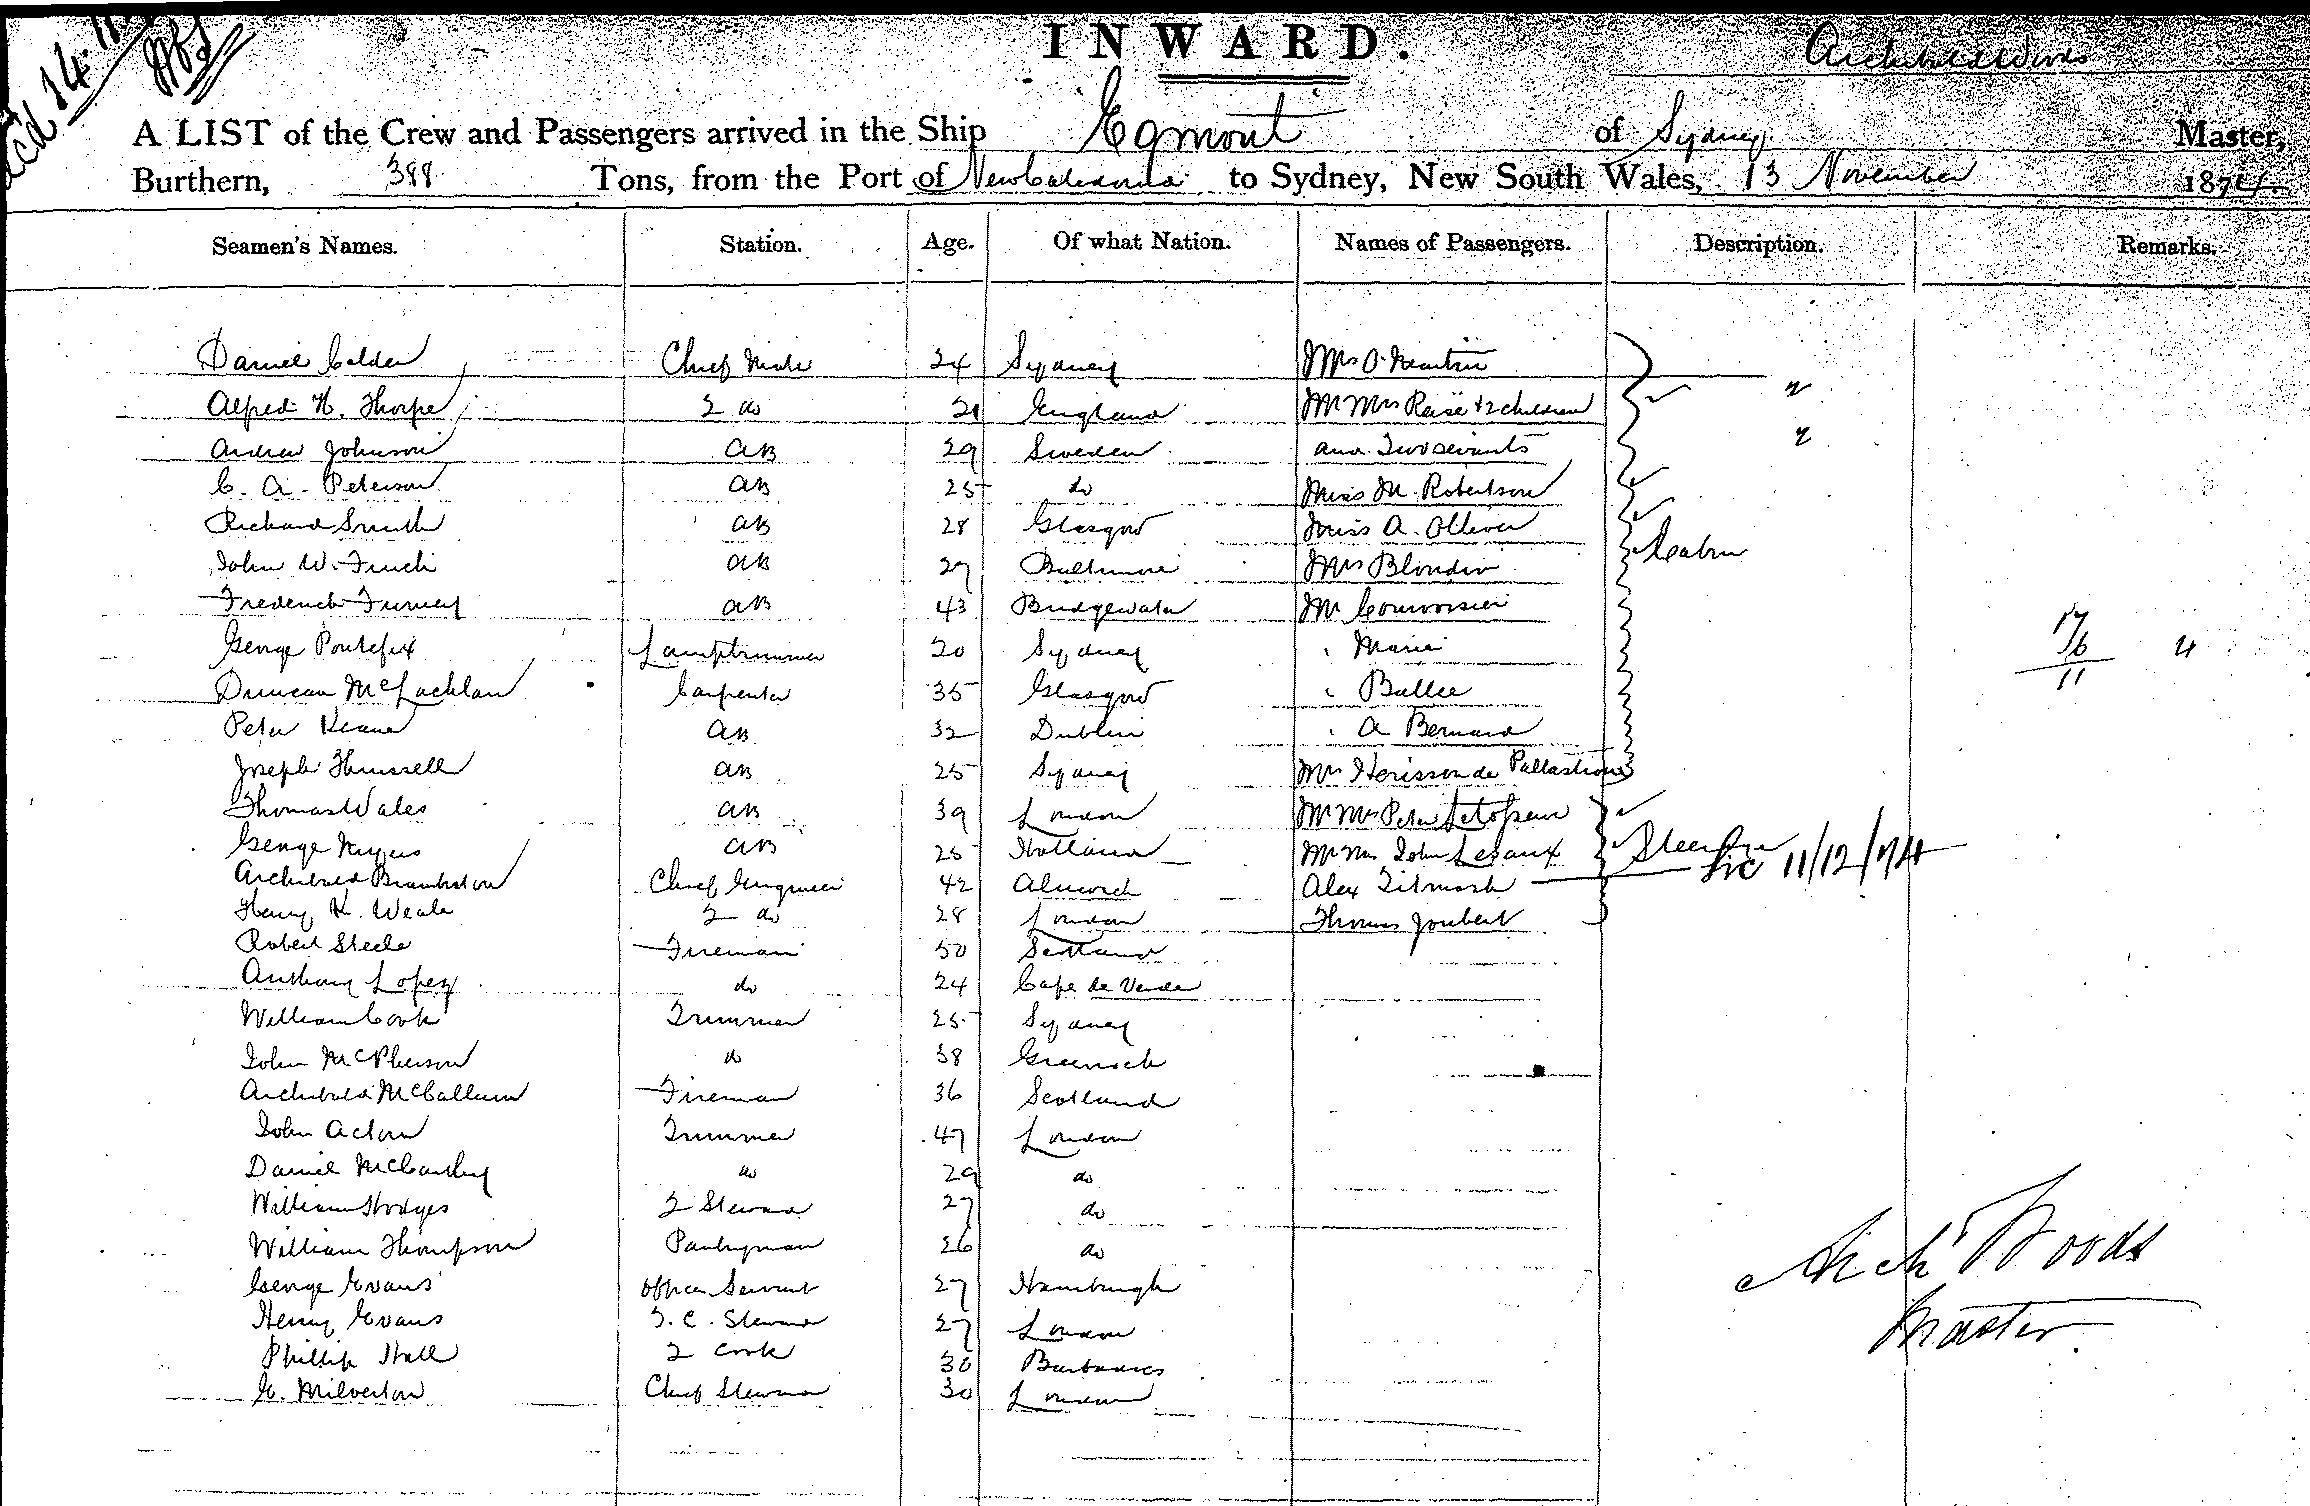 INWARD.
Archibald Woods
A LIST of the Crew and Passengers arrived in the Ship Egmont of Sydney Master,
Burthern, 388 Tons, from the Port of New Caledonia to Sydney, New South Wales, 13 November 1874.
Seamen's Names. Station. Age. Of what Nation. Names of Passengers. Description. Remarks.
Daniel Calder Chief Mate 24 Sydney Mrs O.
Alfred H. Thorpe 2 do 21 England Mr Mrs & 2 children
Andrew Johnson AB 29 Sweden and Two servants
C. A. Peterson AB 25 do Miss M. Robertson
Richard Smith AB 28 Glasgow Miss A. Olliver
John W. Finch AB 27 Baltimore Mrs Blondin Cabin
Frederick Furney AB 43 Bridgewater Mr
George Pontefix Lamptrimmer 20 Sydney " Marie 17 6 11 4
Duncan McLachlan Carpenter 35 Glasgow " Ballee
Peter Keane AB 32 Dublin " A Bernard
Joseph Hunssell AB 25 Sydney Mrs Herisson de
Thomas Wales AB 39 London Mr Mrs Peter
George Myers AB 25 Holland Mr Mrs John Lesaux Steerage
Archibald Chief Engineer 42 Alnwick Alex Titmarsh Lic 11/12/74
Henry K. Weale 2 do 28 London Thomas Joubert
Robert Steele Fireman 50 Scotland
Anthony Lopez do 24 Cape de Verde
William Cook Trimmer 25 Sydney
John McPherson do 38 Greenock
Archibald McCallum Fireman 36 Scotland
John Acton Trimmer 47 London
Daniel McCarthy do 29 do
William Hodges 2 Steward 27 do
William Thompson Pantryman 26 do
George Evans Officer Servant 27 Hamburgh
Henry Evans S. C. Steward 27 London
Phillip Hall 2 Cook 30 Barbadoes
G. Milverton Chief Steward 30 London
Archd Woods
Master